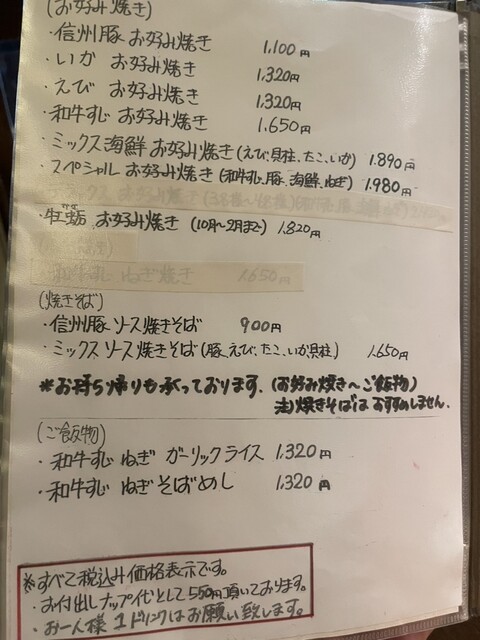 (お好み焼き)
・信州豚 お好み焼き 1,100円
・いか お好み焼き 1,320円
・えび お好み焼き 1,320円
・和牛すじ お好み焼き 1,650円
・ミックス海鮮お好み焼き(えび、貝柱、たこ、いか) 1,890円
・スペシャル お好み焼き (和牛すじ、豚、海鮮、ねぎ) 1,980円
・牡蛎 お好み焼き (10月〜2月まで) 1,820円
・和牛すじ ねぎ焼き 1,650円
(焼きそば)
・信州豚 ソース焼きそば 900円
・ミックスソース焼きそば(豚、えび、たこ、いか、貝柱) 1,650円
※お持ち帰りも承っております。(お好み焼き〜ご飯物)
注)焼きそばはおすすめしません。
(ご飯物)
・和牛すじ ねぎ ガーリックライス 1,320円
・和牛すじ ねぎ そばめし 1,320円
※すべて税込み価格表示です。
・お付出しナップ代として550円頂いております。
・お一人様 1ドリンクはお願い致します。